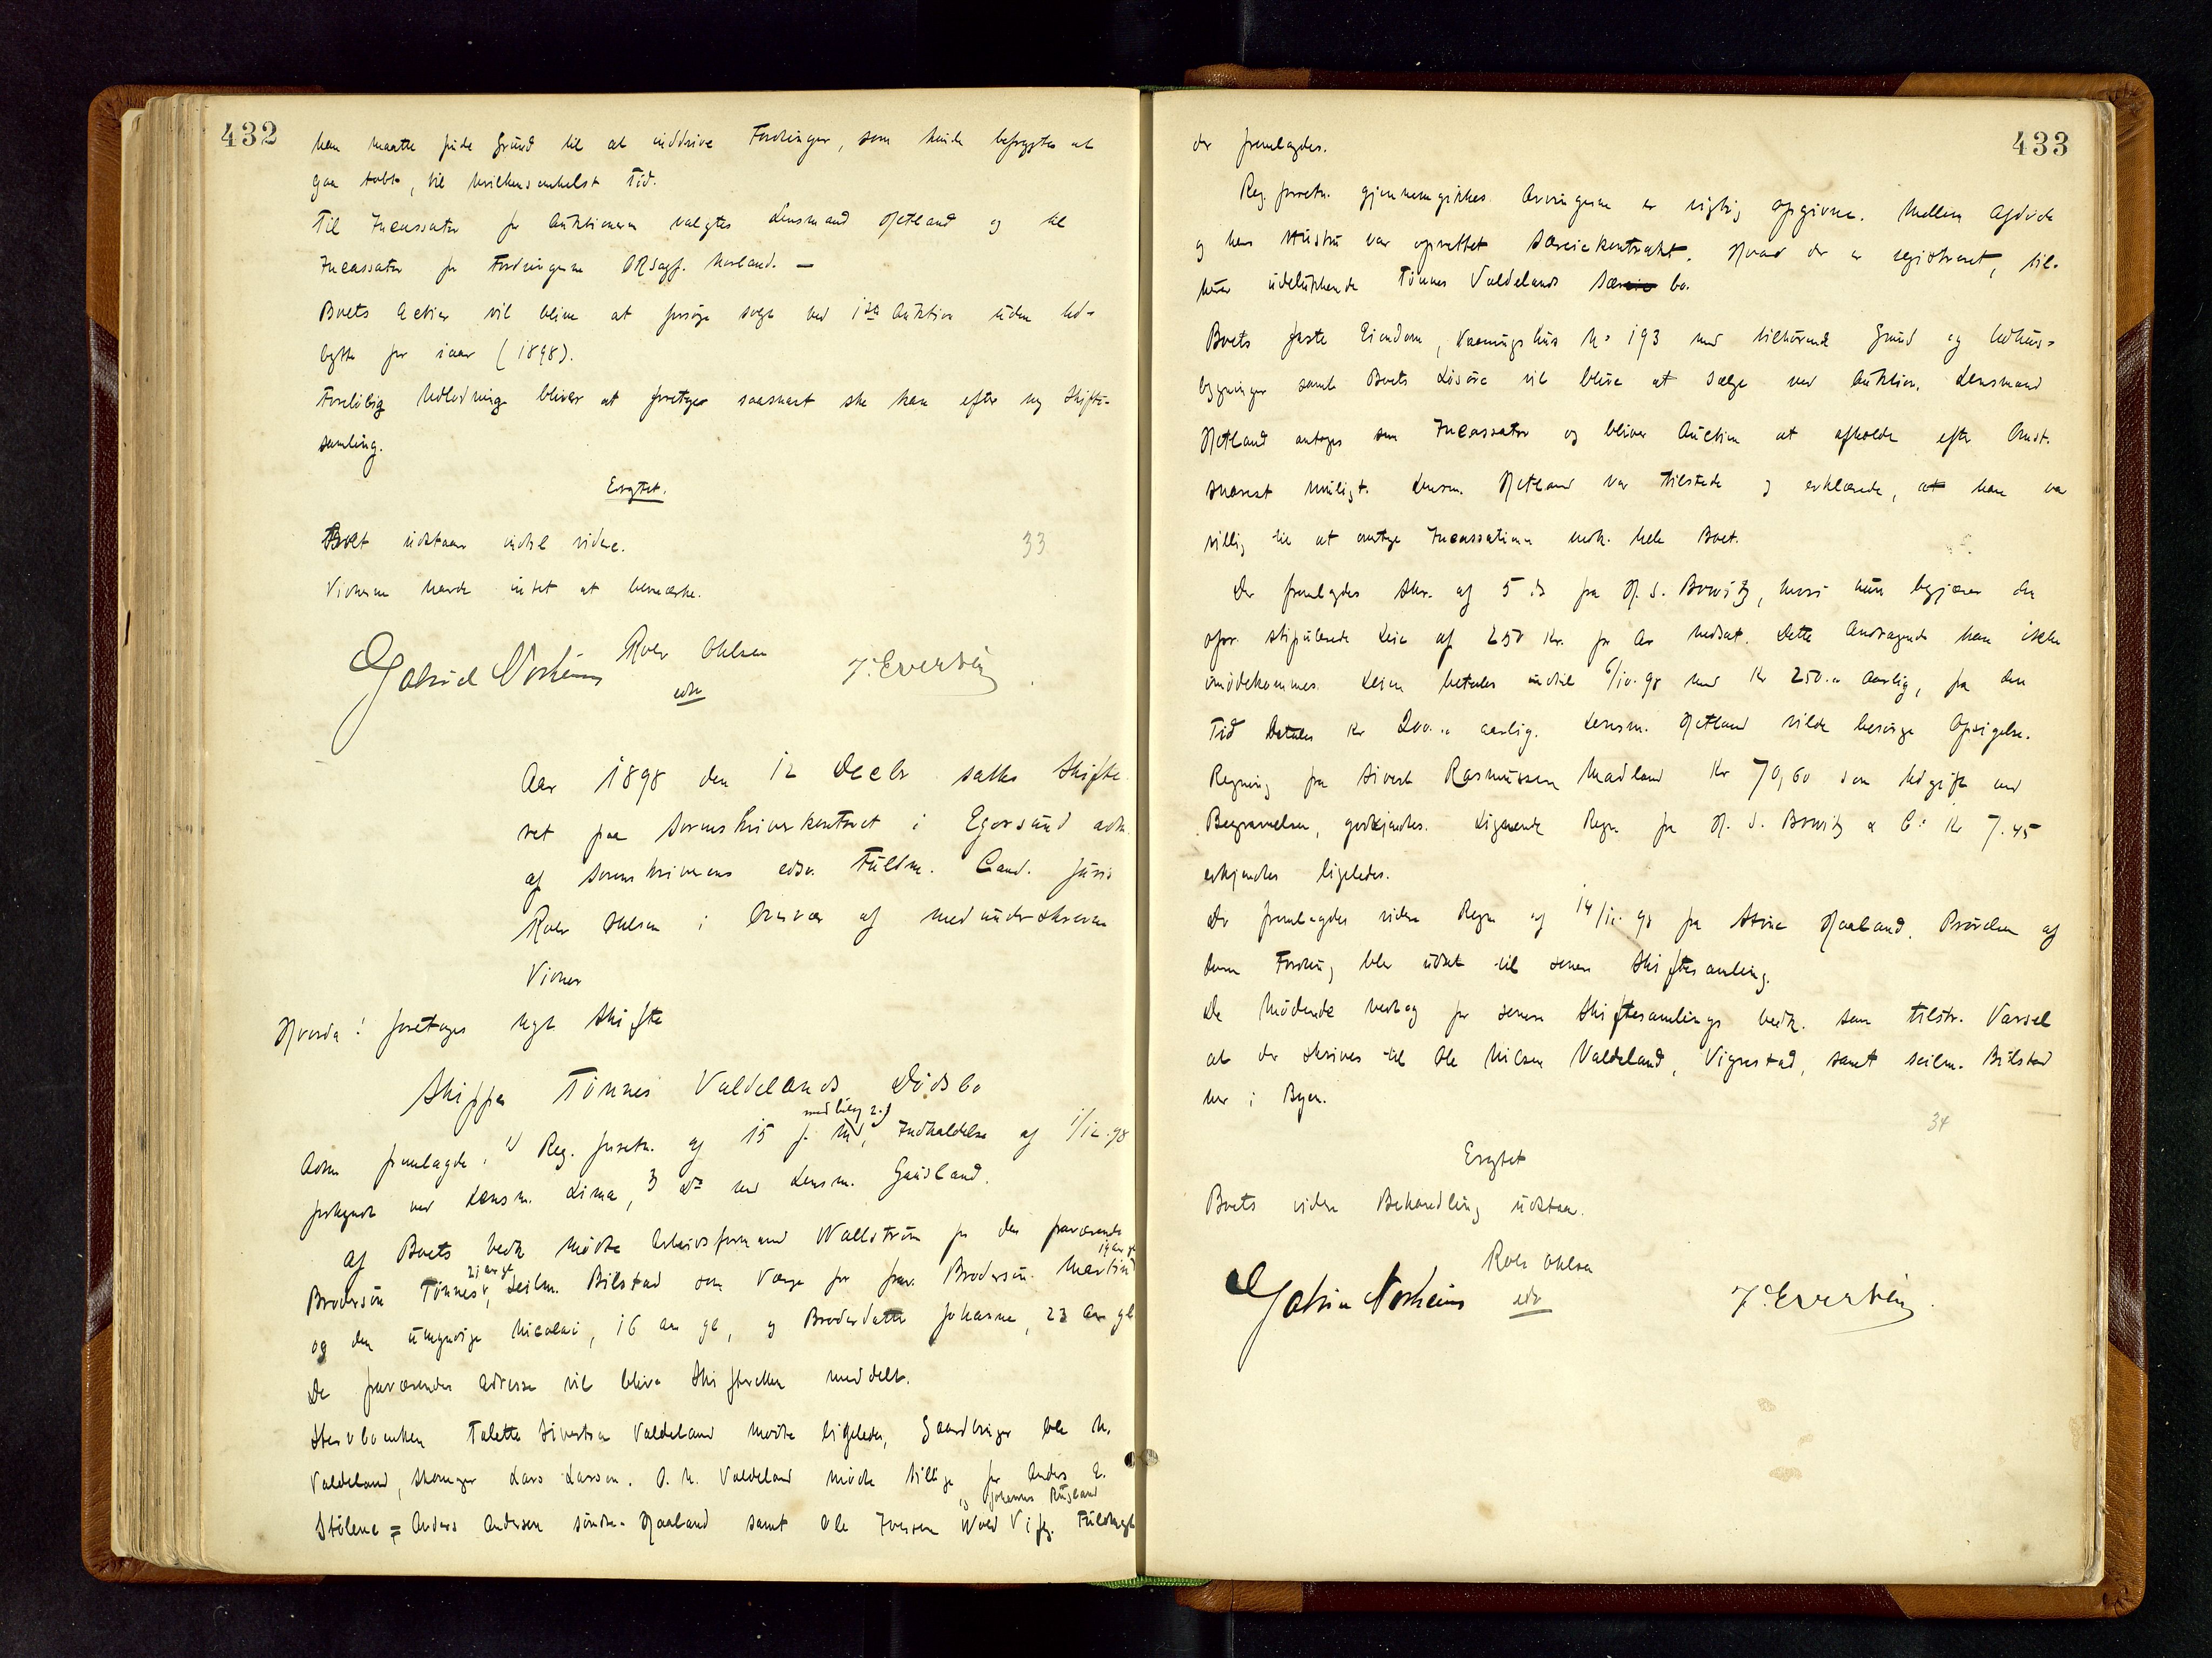 432
han maatte finde Grund til at inddrive Fordringer, som kunde befrygtes at
gaa tabt, til hvilkensomhelst Tid.
Til Incassator for Auktionen valgtes Lensmand Hetland og til
Incassator for Fordringerne ORSagf. Morland. —
Boets Actier vil blive at forsøge solgt ved 1ste Auktion uden Ud-
bytte for iaar (1898).
Foreløbig Udlodning bliver at foretage saasnart ske kan efter ny Skifte-
samling.
Eragtet.
Boet udstaar indtil videre.
33
Vidnerne havde intet at bemærke.
Gabriel Norheim Rolv Ohlsen J. Evertsen
edsv
Aar 1898 den 12 Decbr sattes Skifte
ret paa Sorenskriverkontoret i Egersund adm.
af Sorenskriverens edsv. Fuldm. Cand. juris
Rolv Ohlsen i Overvær af medunderskrevne
Vidner
Hvorda! foretages sluttet Skifte
Skipper Tønnes Valdelands Dødsbo
med bilag 2.)
Adm fremlagde: 1) Reg. forretn. af 15 f. M, Indkaldelse af 1/12.98
forkyndt ved Lensm. Lima, 3 do ved Lensm. Gausland.
Af Boets vedk mødte Arbeidsformand Wallstrøm for den fraværende
21 aar gl. 19 aar gl
Brodersøn Tønnes, Seilm. Bilstad som Værge for frav. Brodersøn Martin
og den umyndige Nicolai, 16 aar gl, og Broderdatter Johanne, 23 aar gl
De fraværendes Adresse vil blive Skifteretten meddelt.
Stervboenken Talette Sivertsen Valdeland mødte ligeledes, Gaardbruger Ole N.
Valdeland, Lars Larsen. O. N. Valdeland mødte tillige for Anders E.
og Johannes Rugland
Stølene = Anders Andersen søndre-Haaland samt Ole Iversen Wold Vifj. Fuldmagt
433
der fremlagdes.
Reg. forretn. gjennemgikkes Arvingerne er rigtig opgivne. Mellem Afdøde
og hans Hustru var oprettet Særeiekontrakt. Hvad der er registreret, til-
hører udelukkende Tønnes Valdelands Særeie bo.
Boets faste Eiendom, Vaaningshus No 193 med tilhørende Grund og Udhus-
bygninger samt Boets Løsøre vil blive at sælge ved Auktion. Lensmand
Hetland antages som Incassator og bliver Auction at afholde efter Omst.
snarest muligt. Lensm. Hetland var tilstede og erklærede, at han var
villig til at overtage Incassationen vedk. hele Boet.
Der fremlagdes Skr. af 5 ds fra H. S. Bowitz, hvori han begjærer den
opr. stipulerede Leie af 250 Kr. pr Aar nedsat. Dette Andragende kan ikke
imødekommes. Leien betales indtil 6/10.98 med Kr 250.- aarlig, fra den
Tid betales Kr 200.- aarlig. Lensm. Hetland vilde besørge Opsigelse.
Regning fra Sivert Rasmussen Madland Kr 70,60 som Udgift ved
Begravelsen, godkjendtes. Lignende Regn fra H. S. Bowitz & Co Kr 7.45
erkjendtes ligeledes.
Der fremlagdes videre Regn af 14/11.98 fra Stine Haaland. Prøvelsen af
denne Fordring blev udsat til senere Skiftesamling.
De Mødende vedtog for senere Skiftesamlings vedk. som tilstr. Varsel
at der skrives til Ole Nilsen Valdeland, Vigrestad, samt Seilm. Bilstad
her i Byen.
34
Eragtet
Boets videre Behandling udstaar.
Rolv Ohlsen
Gabriel Norheim edsv J. Evertsen